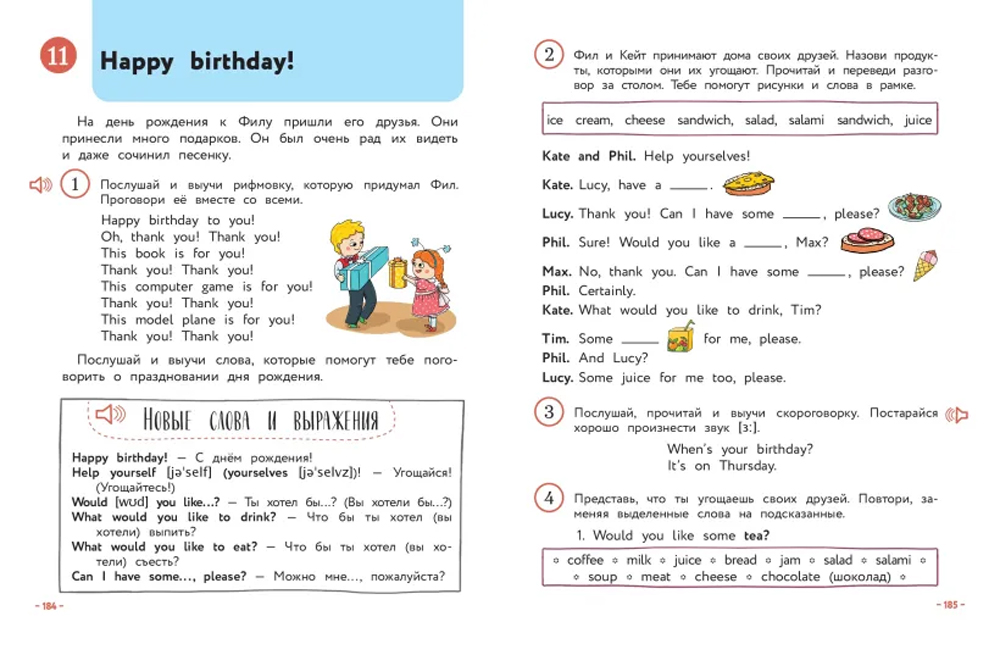 11
Happy birthday!
На день рождения к Филу пришли его друзья. Они
принесли много подарков. Он был очень рад их видеть
и даже сочинил песенку.
1
Послушай и выучи рифмовку, которую придумал Фил.
Проговори её вместе со всеми.
Happy birthday to you!
Oh, thank you! Thank you!
This book is for you!
Thank you! Thank you!
This computer game is for you!
Thank you! Thank you!
This model plane is for you!
Thank you! Thank you!
Послушай и выучи слова, которые помогут тебе пого-
ворить о праздновании дня рождения.
Новые слова и выражения
Happy birthday! — С днём рождения!
Help yourself [jəˈself] (yourselves [jəˈselvz])! — Угощайся!
(Угощайтесь!)
Would [wʊd] you like...? — Ты хотел бы...? (Вы хотели бы...?)
What would you like to drink? — Что бы ты хотел (вы
хотели) выпить?
What would you like to eat? — Что бы ты хотел (вы хо-
тели) съесть?
Can I have some..., please? — Можно мне..., пожалуйста?
- 184 -
2
Фил и Кейт принимают дома своих друзей. Назови продук-
ты, которыми они их угощают. Прочитай и переведи разго-
вор за столом. Тебе помогут рисунки и слова в рамке.
ice cream, cheese sandwich, salad, salami sandwich, juice
Kate and Phil. Help yourselves!
Kate. Lucy, have a _____.
Lucy. Thank you! Can I have some _____, please?
Phil. Sure! Would you like a _____, Max?
Max. No, thank you. Can I have some _____, please?
Phil. Certainly.
Kate. What would you like to drink, Tim?
Tim. Some _____ for me, please.
Phil. And Lucy?
Lucy. Some juice for me too, please.
3
Послушай, прочитай и выучи скороговорку. Постарайся
хорошо произнести звук [ɜ:].
When's your birthday?
It's on Thursday.
4
Представь, что ты угощаешь своих друзей. Повтори, за-
меняя выделенные слова на подсказанные.
1. Would you like some tea?
∘ coffee ∘ milk ∘ juice ∘ bread ∘ jam ∘ salad ∘ salami ∘
∘ soup ∘ meat ∘ cheese ∘ chocolate (шоколад) ∘
- 185 -